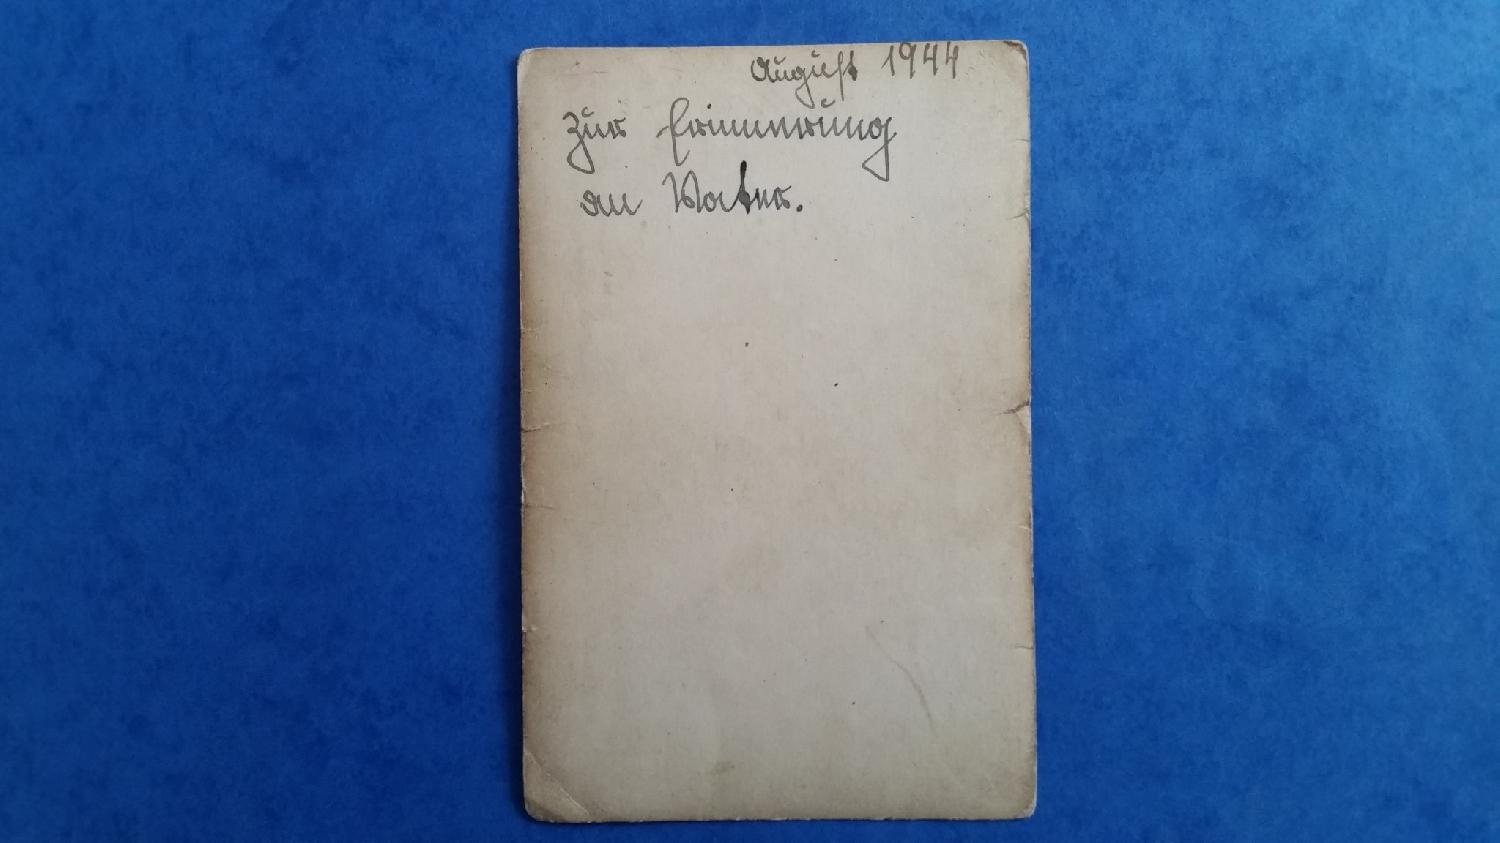 August 1944
Zur Erinnerung
an Vater.